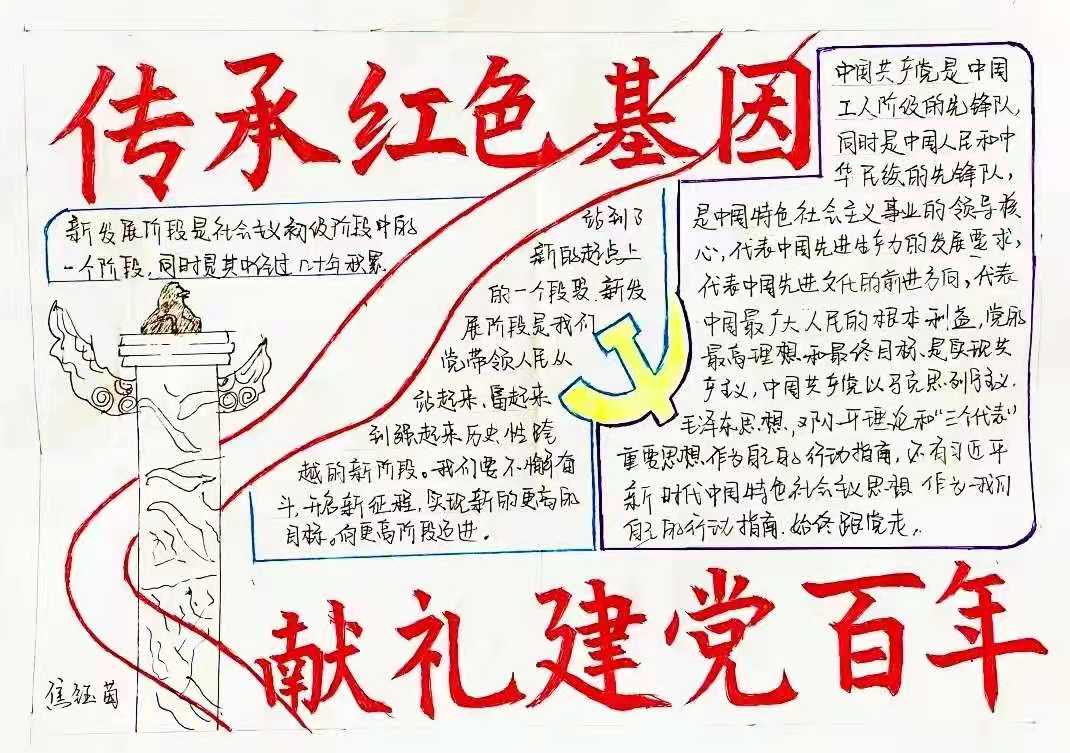 传承红色基因
新发展阶段是社会主义初级阶段中的
一个阶段,同时是其中经过几十年积累
站到了
新的起点上
的一个段,新发
展阶段是我们
党带领人民从
站起来、富起来
到强起来历史性跨
越的新阶段。我们要不懈奋
斗,开启新征程,实现新的更高的
目标。向更高阶段迈进。
中国共产党是中国
工人阶级的先锋队,
同时是中国人民和中
华民族的先锋队,
是中国特色社会主义事业的领导核
心,代表中国先进生产力的发展要求,
代表中国先进文化的前进方向,代表
中国最广大人民的根本利益,党的
最高理想和最终目标、是实现共
产主义,中国共产党以马克思列宁主义.
毛泽东思想,邓小平理论和“三个代表”
重要思想.作为自己的行动指南,还有习近平
新时代中国特色社会主义思想 作为我们
自己的行动指南.始终跟党走.
献礼建党百年
焦钰茵